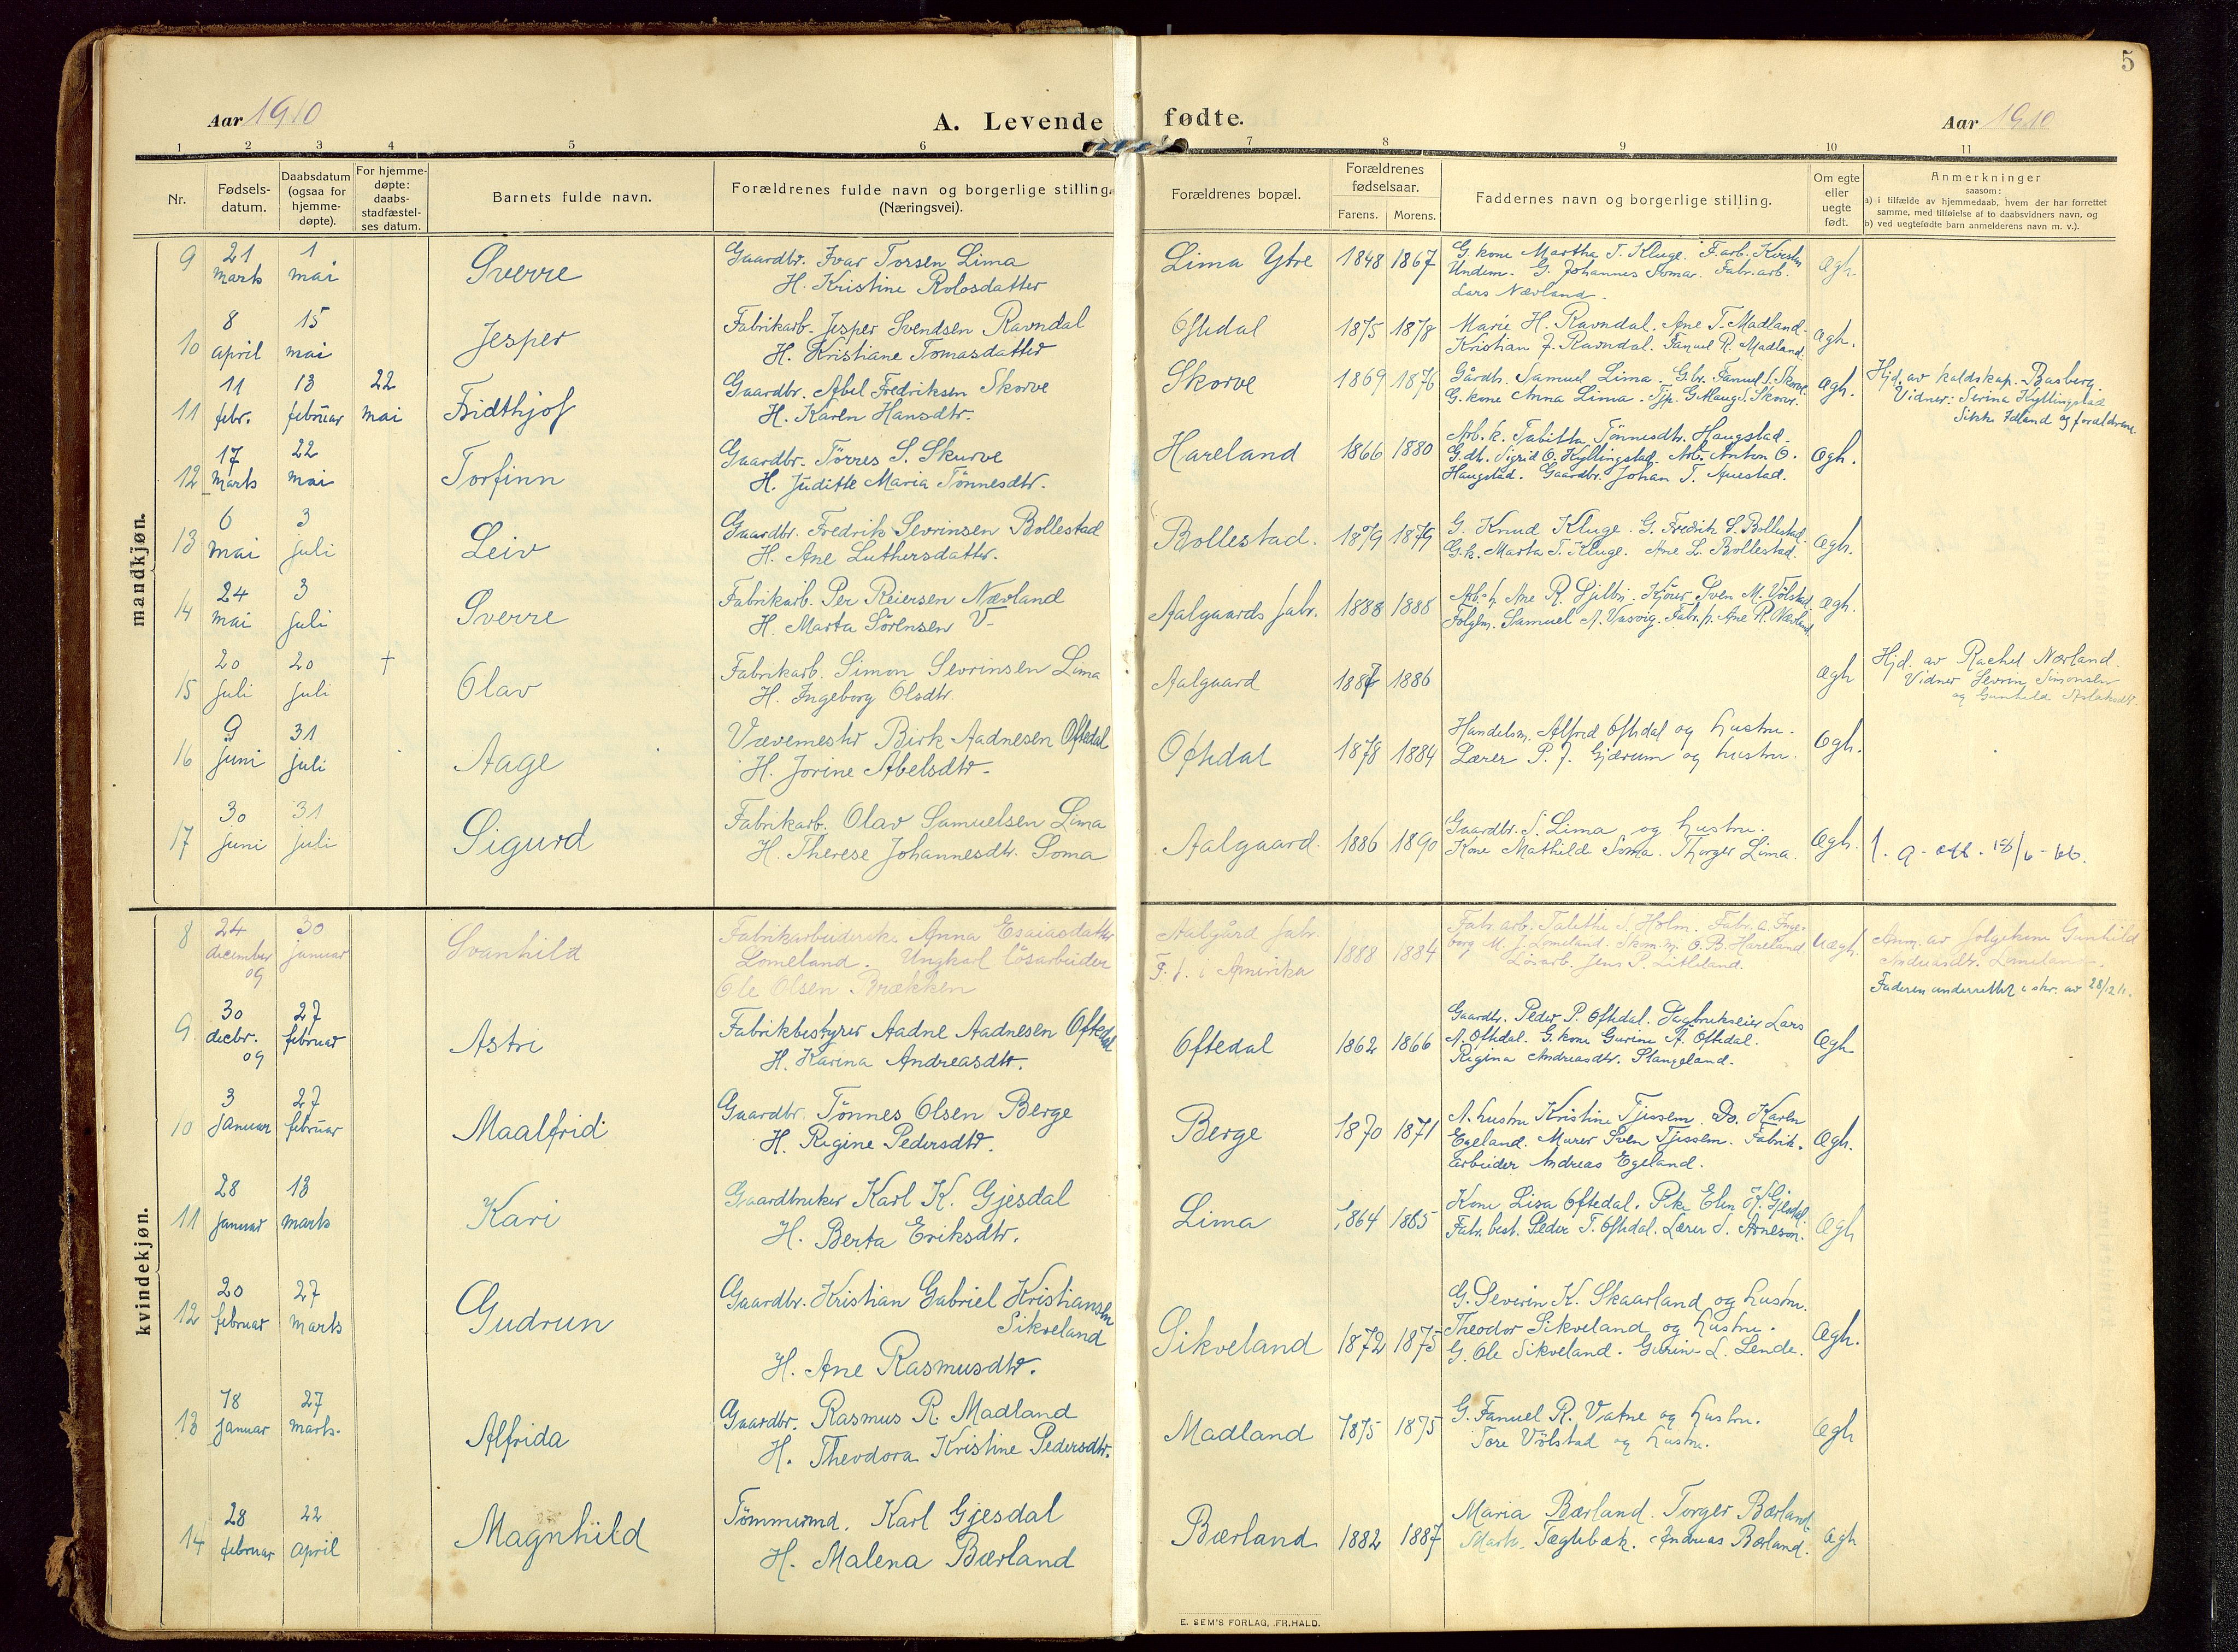 5
Aar 1910
A. Levende fødte.
Aar 1910
1 2 3 4 5 6 7 8 9 10 11
Nr.
Fødsels-
datum.
Daabsdatum
(ogsaa for
hjemme-
døpte).
For hjemme-
døpte:
daabs-
stadfæstel-
ses datum.
Barnets fulde navn.
Forældrenes fulde navn og borgerlige stilling.
(Næringsvei).
Forældrenes bopæl.
Forældrenes
fødselsaar.
Farens. Morens.
Faddernes navn og borgerlige stilling.
Om egte
eller
uegte
født.
Anmerkninger
saasom:
a) i tilfælde av hjemmedaab, hvem der har forrettet
samme, med tilføielse af to daabsvidners navn, og
b) ved uegtefødte barn anmelderens navn m. v.).
mandkjøn.
9 21 marts 1 mai Sverre
Gaardbr. Ivar Torsen Lima
H. Kristine Rolosdatter
Lima Ytre 1848 1867
G. kone Martha T. Kluge. F.arb. Kirsten
Undem. G. Johannes Soma. Fabr.arb.
Lars Nævland.
Ægh.
10 8 april 15 mai Jesper
Fabrikarb. Jesper Svendsen Ravndal
H. Kristiane Tomasdatter
Oftedal 1875 1878
Marie H. Ravndal. Ane T. Madland.
Kristian J. Ravndal. Fanuel R. Madland.
Ægh.
11 11 febr. 13 februar 22 mai Fridthjof
Gaardbr. Abel Fredriksen Skorve
H. Karen Hansdtr.
Skorve 1869 1876
Gårdb. Samuel Lima. G.br. Fanuel S. Skorve
G. kone Anna Lima. Tjp. G. Haug S. Skorve.
Ægh.
Hjd. av kaldskap. Basberg.
Vidner: Serina Kyllingstad
Sikke Idland og forældrene
12 17 marts 22 mai Torfinn
Gaardbr. Tørres S. Skurve
H. Juditte Maria Tønnesdtr.
Hareland 1866 1880
Arb. k. Tabitta Tønnesdtr. Haugstad.
G.dtr. Sigrid O. Kyllingstad. Arb. Anton O.
Haugstad. Gaardbr. Johan T. Auestad.
Ægh.
13 6 mai 3 juli Leiv
Gaardbr. Fredrik Sevrinsen Bollestad
H. Ane Luthersdatter.
Bollestad. 1879 1879
G. Knud Kluge. G. Fredrik S. Bollestad.
G.k. Marta T. Kluge. Ane L. Bollestad.
Ægh.
14 24 mai 3 juli Sverre
Fabrikarb. Per Reiersen Nævland
H. Marta Sörensen V-
Aalgaards fabr. 1888 1888
Arb. k. Ane R. Kjører Sven M. Völstad
Folgem. Samuel A. Fabr. p. Ane R. Nævland
Ægh.
15 20 juli 20 juli † Olav
Fabrikarb. Simon Sevrinsen Lima
H. Ingeborg Olsdtr.
Aalgaard 1887 1886
Ægh
Hjd. av Rachel Nærland.
Vidner Sevrin Simonsen
og Gunhild Aslaksdtr.
16 9 juni 31 juli Aage
Vævemester Birk Aadnesen Oftedal
H. Jorine Abelsdtr.
Oftedal 1878 1884
Handelsm. Alfred Oftedal og hustru.
Lærer P. J. Gjærum og hustru.
Ægh.
17 30 juni 31 juli Sigurd
Fabrikarb. Olav Samuelsen Lima
H. Therese Johannesdtr. Soma
Aalgaard. 1886 1890
Gaardbr. S. Lima og hustru.
Kone Mathilde Soma. Thorger Lima.
Ægh.
kvindekjøn.
8 24 december 09 30 januar Svanhild
Fabrikarbeiderske Anna Esaiasdatter
Lomeland. Ungkarl løsarbeider
Ole Olsen Brækken
Aalgård fabr.
F. f. i Amerika
1888 1884
Fabr. arb. Talitha S. Holm. Fabr. a. Inge-
borg M. J. Lomeland. Skm. m. O. B. Hareland
Løsarb. Jens P. Litleland.
Uægh.
Anm. av folgekone Gunhild
Andreasdtr. Lomeland.
Faderen underrettet i skr. av 28/12 11.
9 30 decbr. 09 27 februar Astri
Fabrikbestyrer Aadne Aadnesen Oftedal
H. Karina Andreasdtr.
Oftedal 1862 1866
Gaardbr. Peder P. Oftedal. Sagbrukseier Lars
A. Oftedal. G. kone Gurine A. Oftedal.
Regina Andreasdtr. Stangeland.
Ægh
10 3 januar 27 februar Maalfrid
Gaardbr. Tönnes Olsen Berge
H. Regine Pedersdtr.
Berge 1870 1871
A. hustru Kristine Tjessem. Do. Karen
Egeland. Murer Sven Tjessem. Fabrik-
arbeider Andreas Egeland.
Ægh.
11 28 januar 13 marts Kari
Gaardbruker Karl K. Gjesdal
H. Berta Eriksdtr.
Lima 1864 1865
Kone Lisa Oftedal. Pike Elen K. Gjesdal.
Fabr. best. Peder T. Oftedal. Lærer S. Arneson.
Ægh
12 20 februar 27 marts Gudrun
Gaardbr. Kristian Gabriel Kristiansen
Sikveland
H. Ane Rasmusdtr.
Sikveland 1872 1875
G. Severin K. Skaarland og hustru.
Theodor Sikveland og hustru.
G. Ole Sikveland. Gurine L. Lende.
Ægh.
13 18 januar 27 marts. Alfrida
Gaardbr. Rasmus R. Madland
H. Theodora Kristine Pedersdtr.
Madland 1875 1875
G. Fanuel R. Vatne og hustru.
Tore Völstad og hustru.
Ægh
14 28 februar 22 april Magnhild
Tömmermd. Karl Gjesdal
H. Malena Bærland
Bærland 1882 1887
Maria Bærland. Torger Bærland.
Mart. Tæglebæk. Andreas Bærland.
Ægh
E. SEM'S FORLAG, FR.HALD.